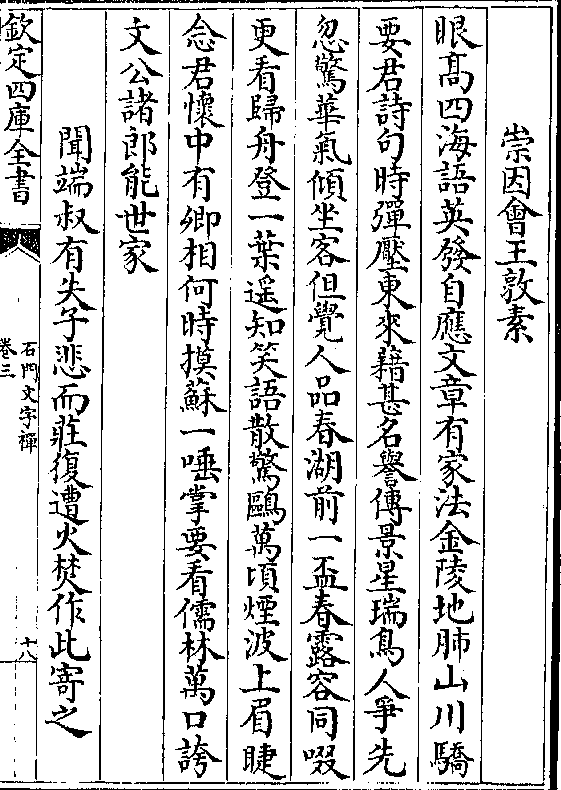 崇因會王敦素
眼髙四海語英發自應文章有家法金陵地肺山川驕
要君詩句時彈壓東來藉甚名譽傳景星瑞鳥人爭先
忽驚華氣傾坐客但覺人品春湖前一盃春露容同啜
更看歸舟登一葉遥知笑語散驚鷗萬頃煙波上眉睫
念君懷中有卿相何時摸蘇一唾掌要看儒林萬口誇
文公諸郎能世家
聞端叔有失子悲而莊復遭火焚作此寄之
欽定四庫全書
石門文字禪
卷三
十八